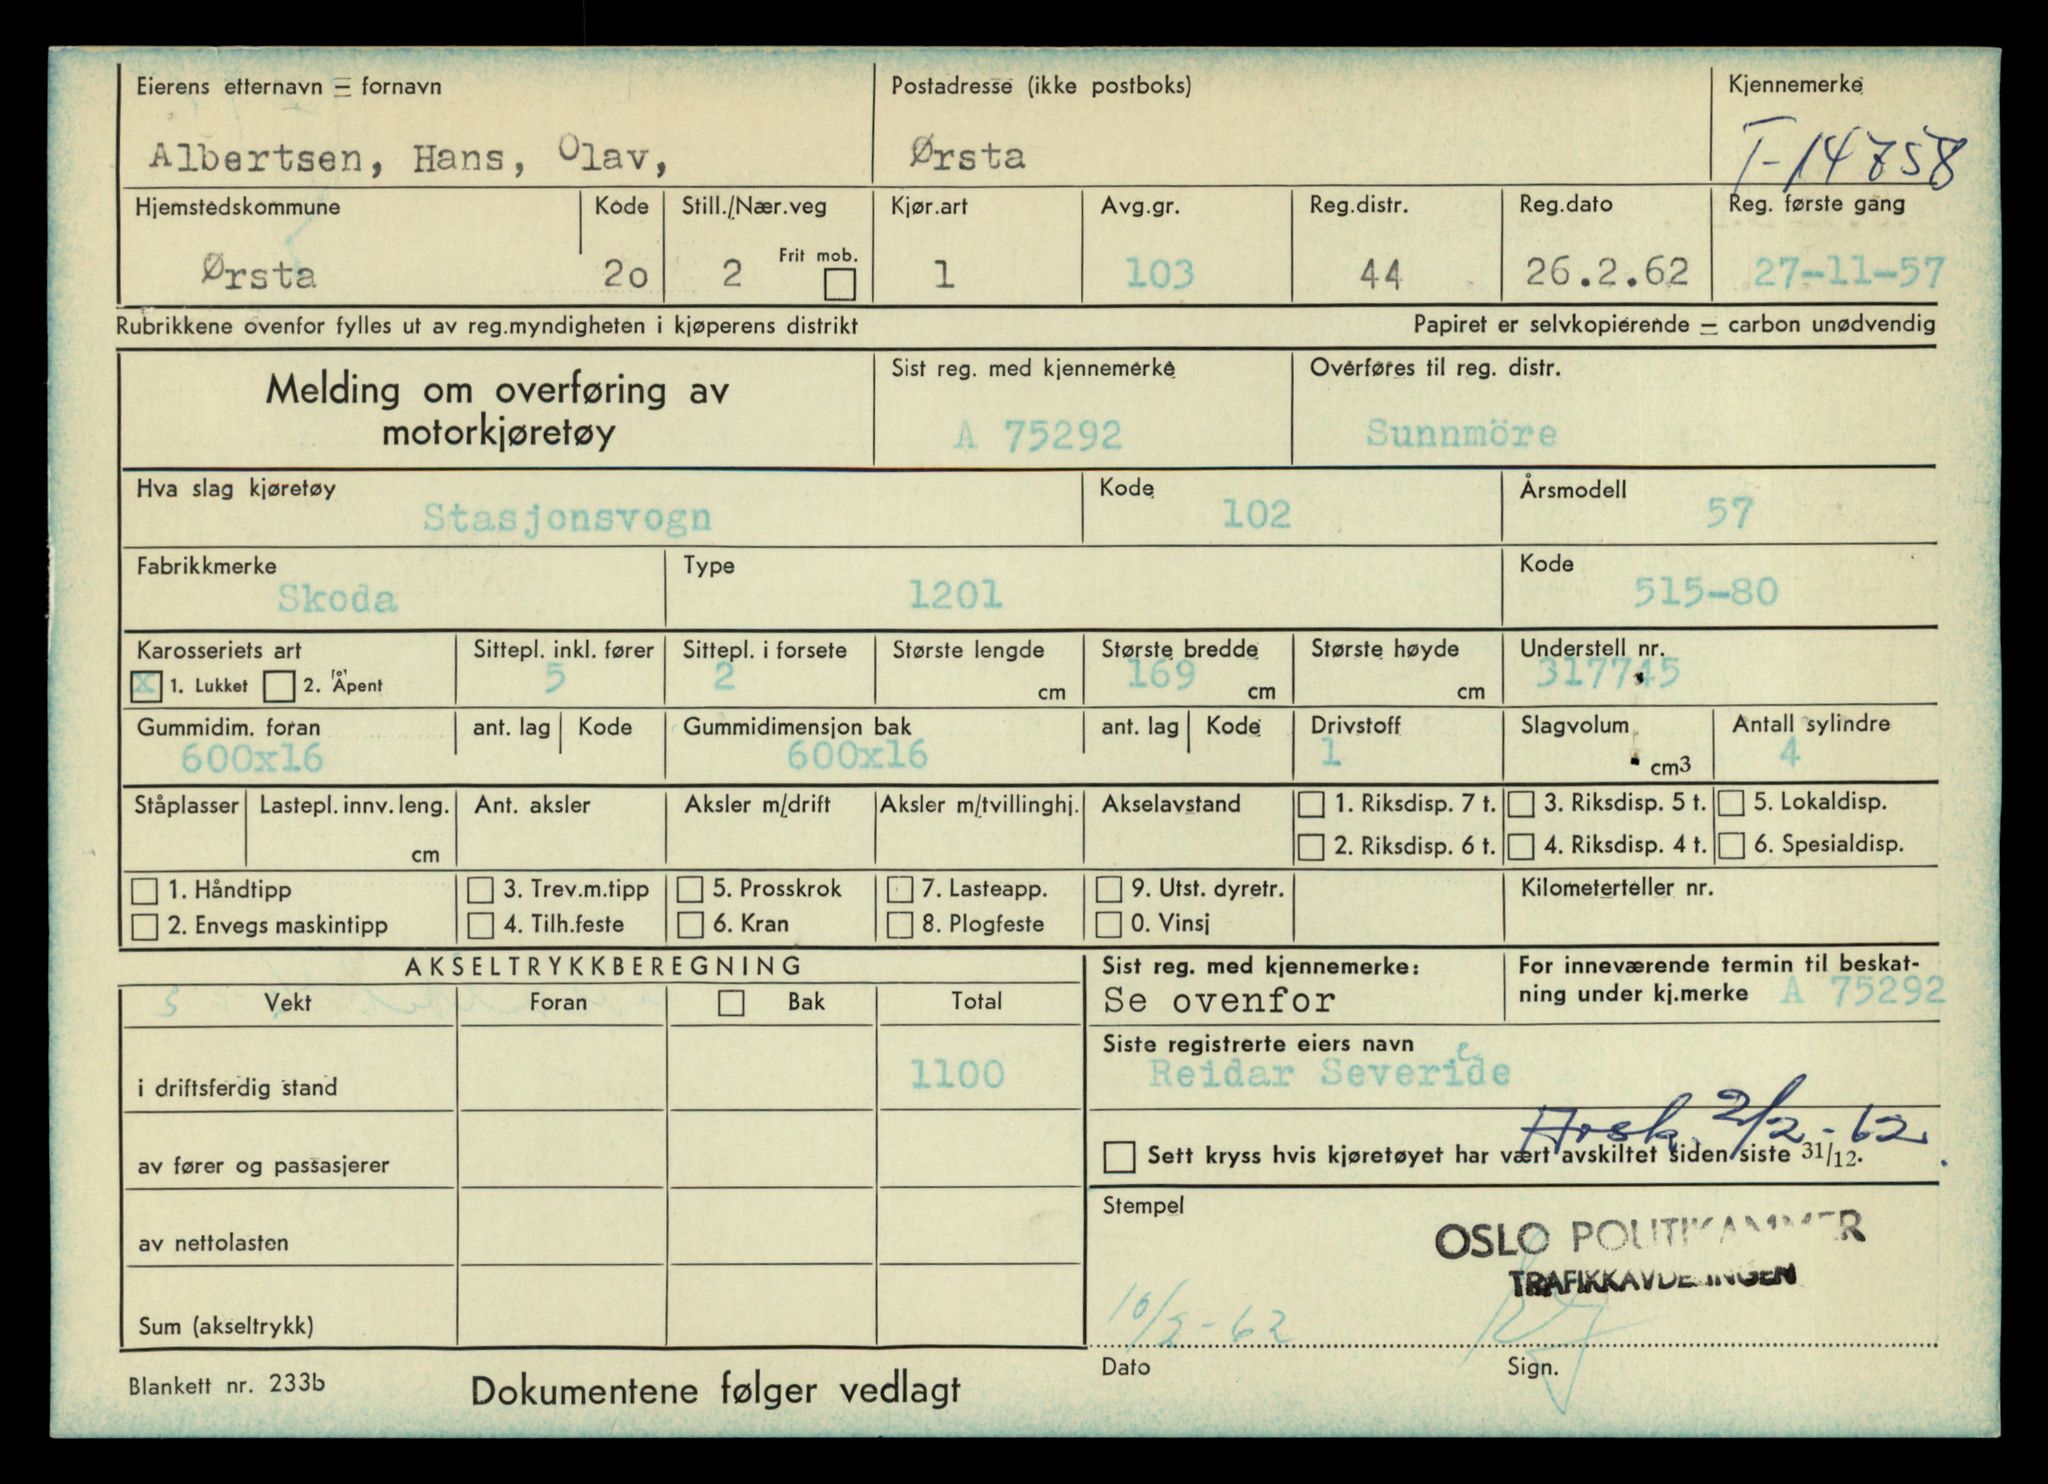 Eierens etternavn – fornavn Postadresse (ikke postboks) Kjennemerke
Albertsen, Hans, Olav, Ørsta T-14758
Hjemstedskommune Kode Still./Nær.veg Kjør.art Avg.gr. Reg.distr. Reg.dato Reg. første gang
Frit mob.
Ørsta 20 2 1 103 44 26.2.62 27-11-57
Rubrikkene ovenfor fylles ut av reg.myndigheten i kjøperens distrikt Papiret er selvkopierende – carbon unødvendig
Melding om overføring av Sist reg. med kjennemerke Overføres til reg. distr.
motorkjøretøy A 75292 Sunnmöre
Hva slag kjøretøy Kode Årsmodell
Stasjonsvogn 102 57
Fabrikkmerke Type Kode
Skoda 1201 515-80
Karosseriets art Sittepl. inkl. fører Sittepl. i forsete Største lengde Største bredde Største høyde Understell nr.
x 1. Lukket 2. Åpent 5 2 cm 169 cm cm 317745
Gummidim. foran ant. lag Kode Gummidimensjon bak ant. lag Kode Drivstoff Slagvolum Antall sylindre
600x16 600x16 1 cm3 4
Ståplasser Lastepl. innv. leng. Ant. aksler Aksler m/drift Aksler m/tvillinghj. Akselavstand 1. Riksdisp. 7 t. 3. Riksdisp. 5 t. 5. Lokaldisp.
cm 2. Riksdisp. 6 t. 4. Riksdisp. 4 t. 6. Spesialdisp.
1. Håndtipp 3. Trev.m.tipp 5. Prosskrok 7. Lasteapp. 9. Utst. dyretr. Kilometerteller nr.
2. Envegs maskintipp 4. Tilh.feste 6. Kran 8. Plogfeste 0. Vinsj
AKSELTRYKKBEREGNING Sist reg. med kjennemerke: For inneværende termin til beskat-
Vekt Foran Bak Total Se ovenfor ning under kj.merke A 75292
Siste registrerte eiers navn
i driftsferdig stand 1100 Reidar Severide
e
Avsk. 2/2-62.
av fører og passasjerer Sett kryss hvis kjøretøyet har vært avskiltet siden siste 31/12.
Stempel
av nettolasten OSLO POLITIKAMMER
TRAFIKKAVDELINGEN
Sum (akseltrykk) 10/2-62
Dato Sign.
Blankett nr. 233b Dokumentene følger vedlagt